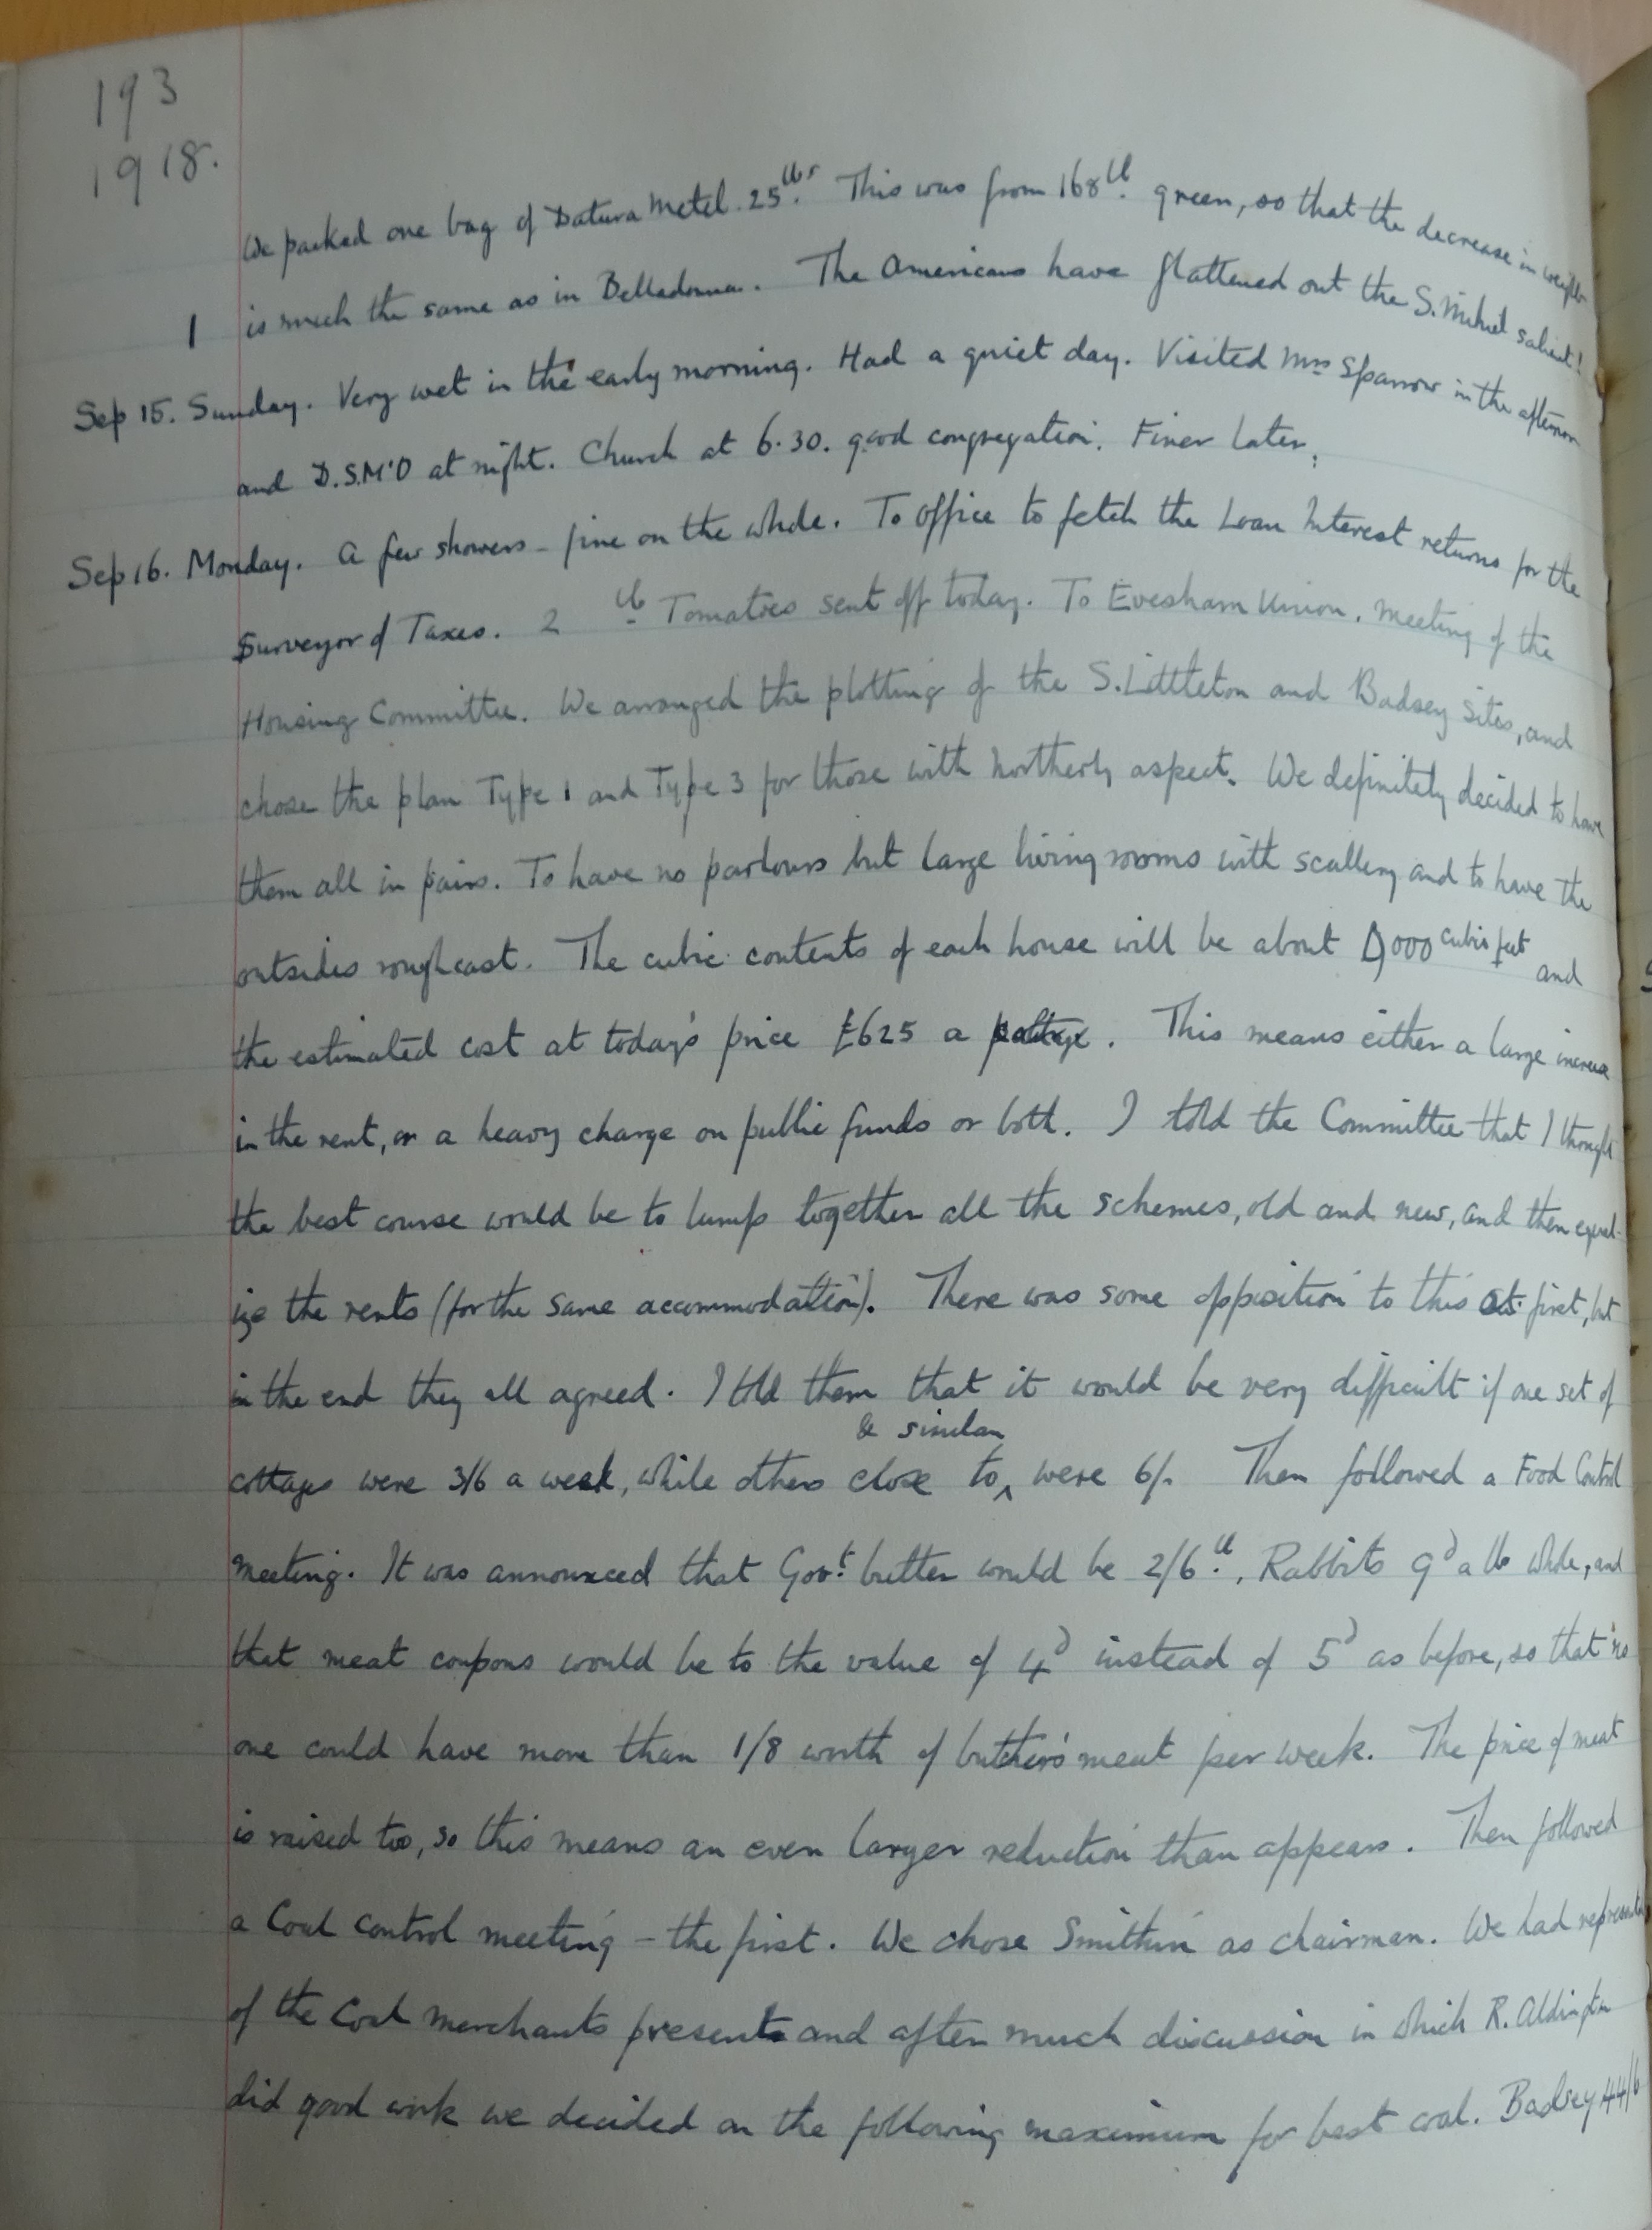 193
1918.
We packed one bag of Datura Metel. 25lbs. This was from 168lb. green, so that the decrease in weight
1 is much the same as in Belladonna. The Americans have flattened out the S. Mihiel salient!
Sep 15. Sunday. Very wet in the early morning. Had a quiet day. Visited Mrs Sparrow in the afternoon
and D.S.M'D at night. Church at 6.30. good congregation. Finer later.
Sep 16. Monday. A few showers - fine on the whole. To office to fetch the Loan Interest returns for the
Surveyor of Taxes. 2 lb Tomatoes sent off today. To Evesham Union. Meeting of the
Housing Committee. We arranged the plotting of the S. Littleton and Badsey sites, and
chose the plan Type 1 and Type 3 for those with Northerly aspect. We definitely decided to have
them all in pairs. To have no parlours but large living rooms with scullery and to have the
outsides roughcast. The cubic contents of each house will be about ,000 cubic feet and
the estimated cost at today's price £625 a cottage. This means either a large increase
in the rent, or a heavy charge on public funds or both. I told the Committee that I thought
the best course would be to lump together all the schemes, old and new, and then equal-
ize the rents (for the same accommodation). There was some opposition to this at first, but
in the end they all agreed. I told them that it would be very difficult if one set of
& similar
cottages were 3/6 a week, while others close to, were 6/-. Then followed a Food Control
meeting. It was announced that Govt. butter would be 2/6 lb., Rabbits 9d a lb whole, and
that meat coupons would be to the value of 4d instead of 5d as before, so that no
one could have more than 1/8 worth of butcher's meat per week. The price of meat
is raised too, so this means an even larger reduction than appears. Then followed
a Coal control meeting - the first. We chose Smithin as chairman. We had
of the Coal merchants present and after much discussion in which R. Aldington
did good work we decided on the following maximum for best coal. Badsey 44/6